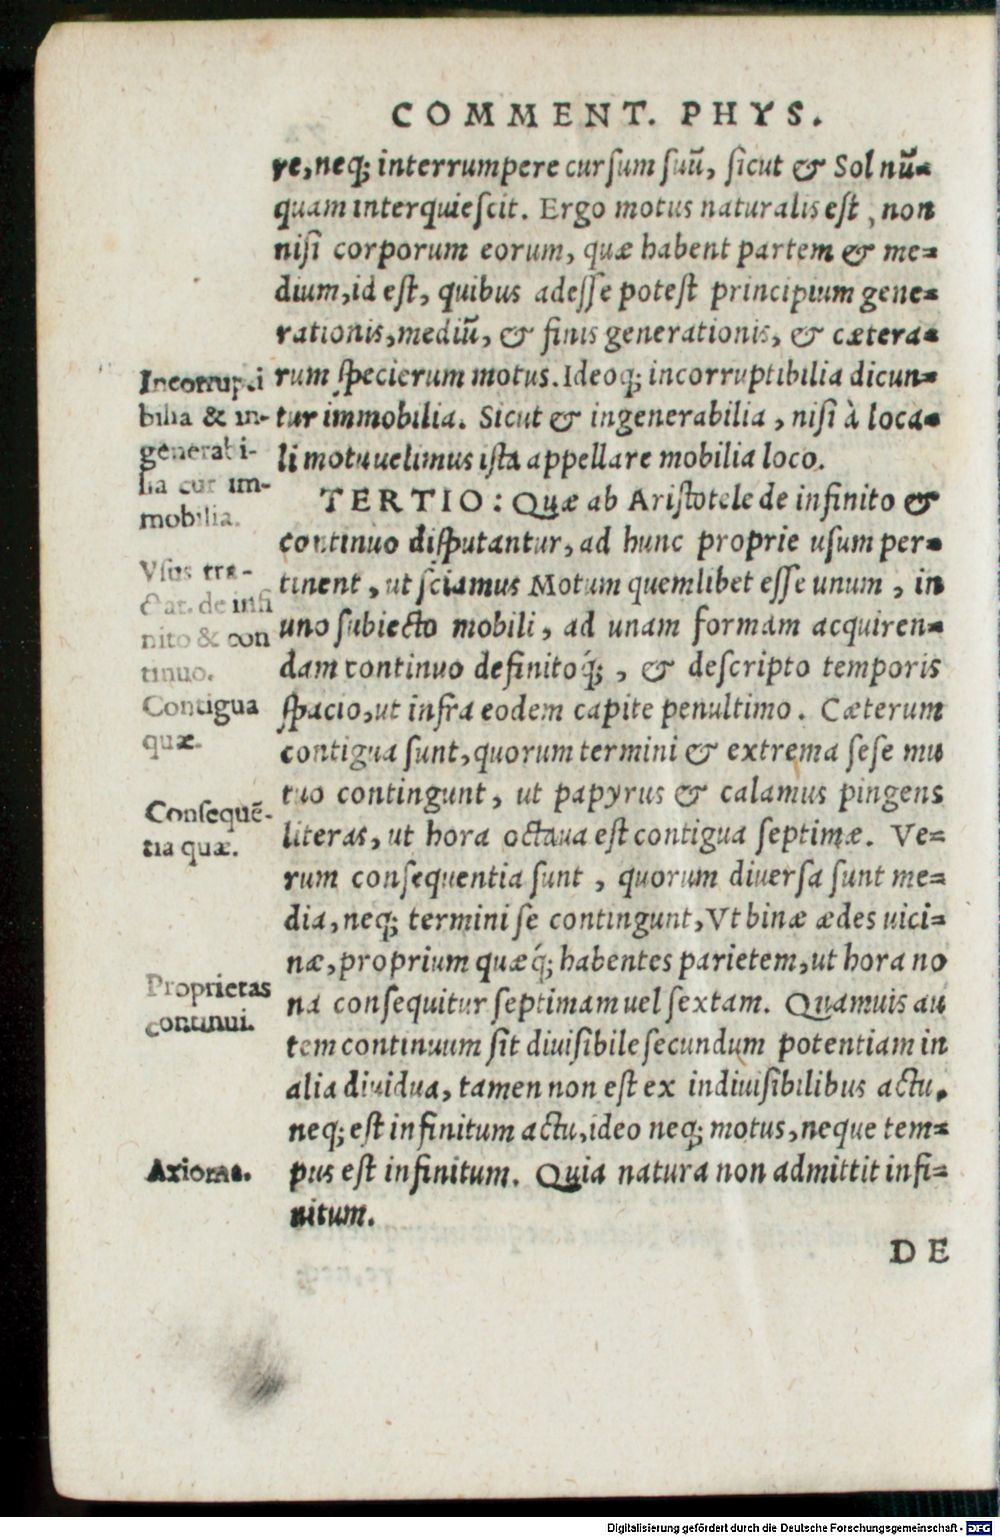 COMMENT. PHYS.
re, neq; interrumpere cursum suũ, sicut & Sol nũ-
quam interquiescit. Ergo motus naturalis est, non
nisi corporum eorum, quæ habent partem & me-
dium, id est, quibus adesse potest principium gene-
rationis, mediũ, & finis generationis, & cætera-
rum specierum motus. Ideoq; incorruptibilia dicun-
tur immobilia. Sicut & ingenerabilia, nisi à loca-
li motu uelimus ista appellare mobilia loco.
Incorrupti
bilia & in-
generabi-
lia cur im-
mobilia.
TERTIO: Quæ ab Aristotele de infinito &
continuo disputantur, ad hunc proprie usum per-
tinent, ut sciamus Motum quemlibet esse unum, in
uno subiecto mobili, ad unam formam acquiren-
dam continuo definitoq́;, & descripto temporis
spacio, ut infra eodem capite penultimo. Cæterum
contigua sunt, quorum termini & extrema sese mu
tuo contingunt, ut papyrus & calamus pingens
literas, ut hora octaua est contigua septimæ. Ve-
rum consequentia sunt, quorum diuersa sunt me-
dia, neq; termini se contingunt, Vt binæ ædes uici-
næ, proprium quæq́; habentes parietem, ut hora no
na consequitur septimam uel sextam. Quamuis au
tem continuum sit diuisibile secundum potentiam in
alia diuidua, tamen non est ex indiuisibilibus actu,
neq; est infinitum actu, ideo neq; motus, neque tem-
pus est infinitum. Quia natura non admittit infi-
nitum.
Vsus tra-
ctat. de infi
nito & con
tinuo.
Contigua
quæ.
Consequẽ-
tia quæ.
Proprietas
continui.
Axioma.
DE
Digitalisierung gefördert durch die Deutsche Forschungsgemeinschaft - DFG